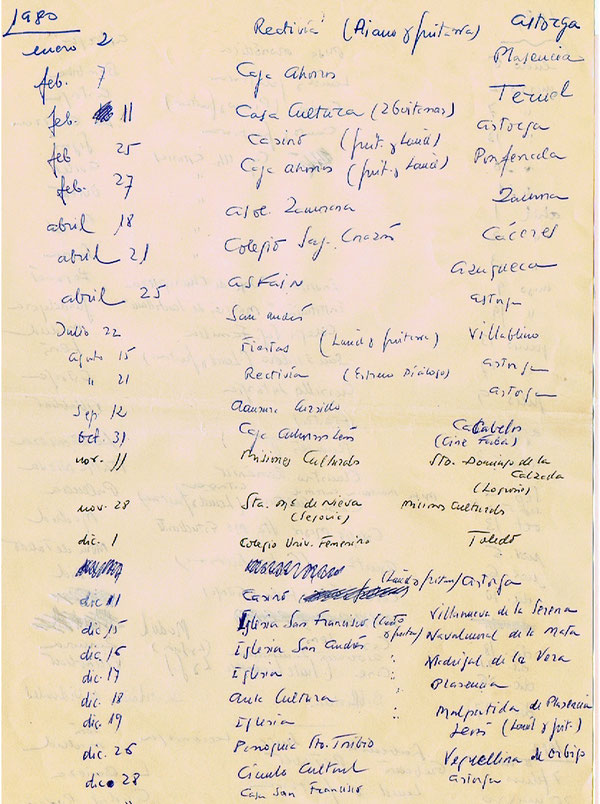 1980
enero 2 Rectivía (Piano y guitarra) Astorga
feb. 7 Caja Ahorros Plasencia
feb. 11 Casa Cultura (2 Guitarras) Teruel
feb 25 Casino (guit. y Laúd) Astorga
feb. 27 Caja Ahorros (guit. y Laúd) Ponferrada
abril 18 Zamora
abril 21 Colegio Sag. Corazón Cáceres
abril 25 Azuqueca
San Andrés Astorga
Julio 22 Fiestas (Laúd y guitarra) Villablino
Agosto 15 Rectivía (Estreno Diálogo) Astorga
" 21 Astorga
Sep. 12 Clausura Cursillo
Oct. 31 Caja Ahorros León Cacabelos
(Cine Faba)
nov. 11 Misiones Culturales Sto. Domingo de la
Calzada
(Logroño)
nov. 28 Sta. Mª de Nieva Misiones Culturales
(Segovia)
dic. 1 Colegio Univ. Femenino Toledo
dic 11 Casino (Laúd y guitarra) Astorga
dic. 15 Iglesia San Francisco Villanueva de la Serena
dic. 16 Iglesia San Andrés " Navalmoral de la Mata
dic. 17 Iglesia " Madrigal de la Vera
dic. 18 Aula Cultura Plasencia
dic. 19 Iglesia " Malpartida de Plasencia
dic. 26 Parroquia Sto. Toribio León (Laúd y guit.)
dic. 28 Círculo Cultural Veguellina de Orbigo
" Casa San Francisco Astorga